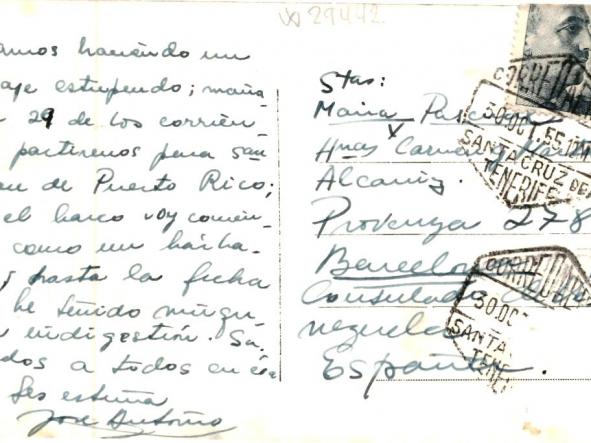 29442
amos haciendo un
aje estupendo; maña
29 de los corrien
partiremos para San
an de Puerto Rico;
el barco voy comien
como un bárba
y hasta la fecha
he tenido ningu
indigestión. Sa
dos a todos
les estima
José Antonio
Stas:
Maria
Hnas
Alcañiz.
Provenza 278
Barcelona
Consulado de Ve
nezuela
España.
CORREO
30.OCT 55.12M
SANTA CRUZ DE
TENERIFE
CORREO
30.OCT
SANTA
TENER